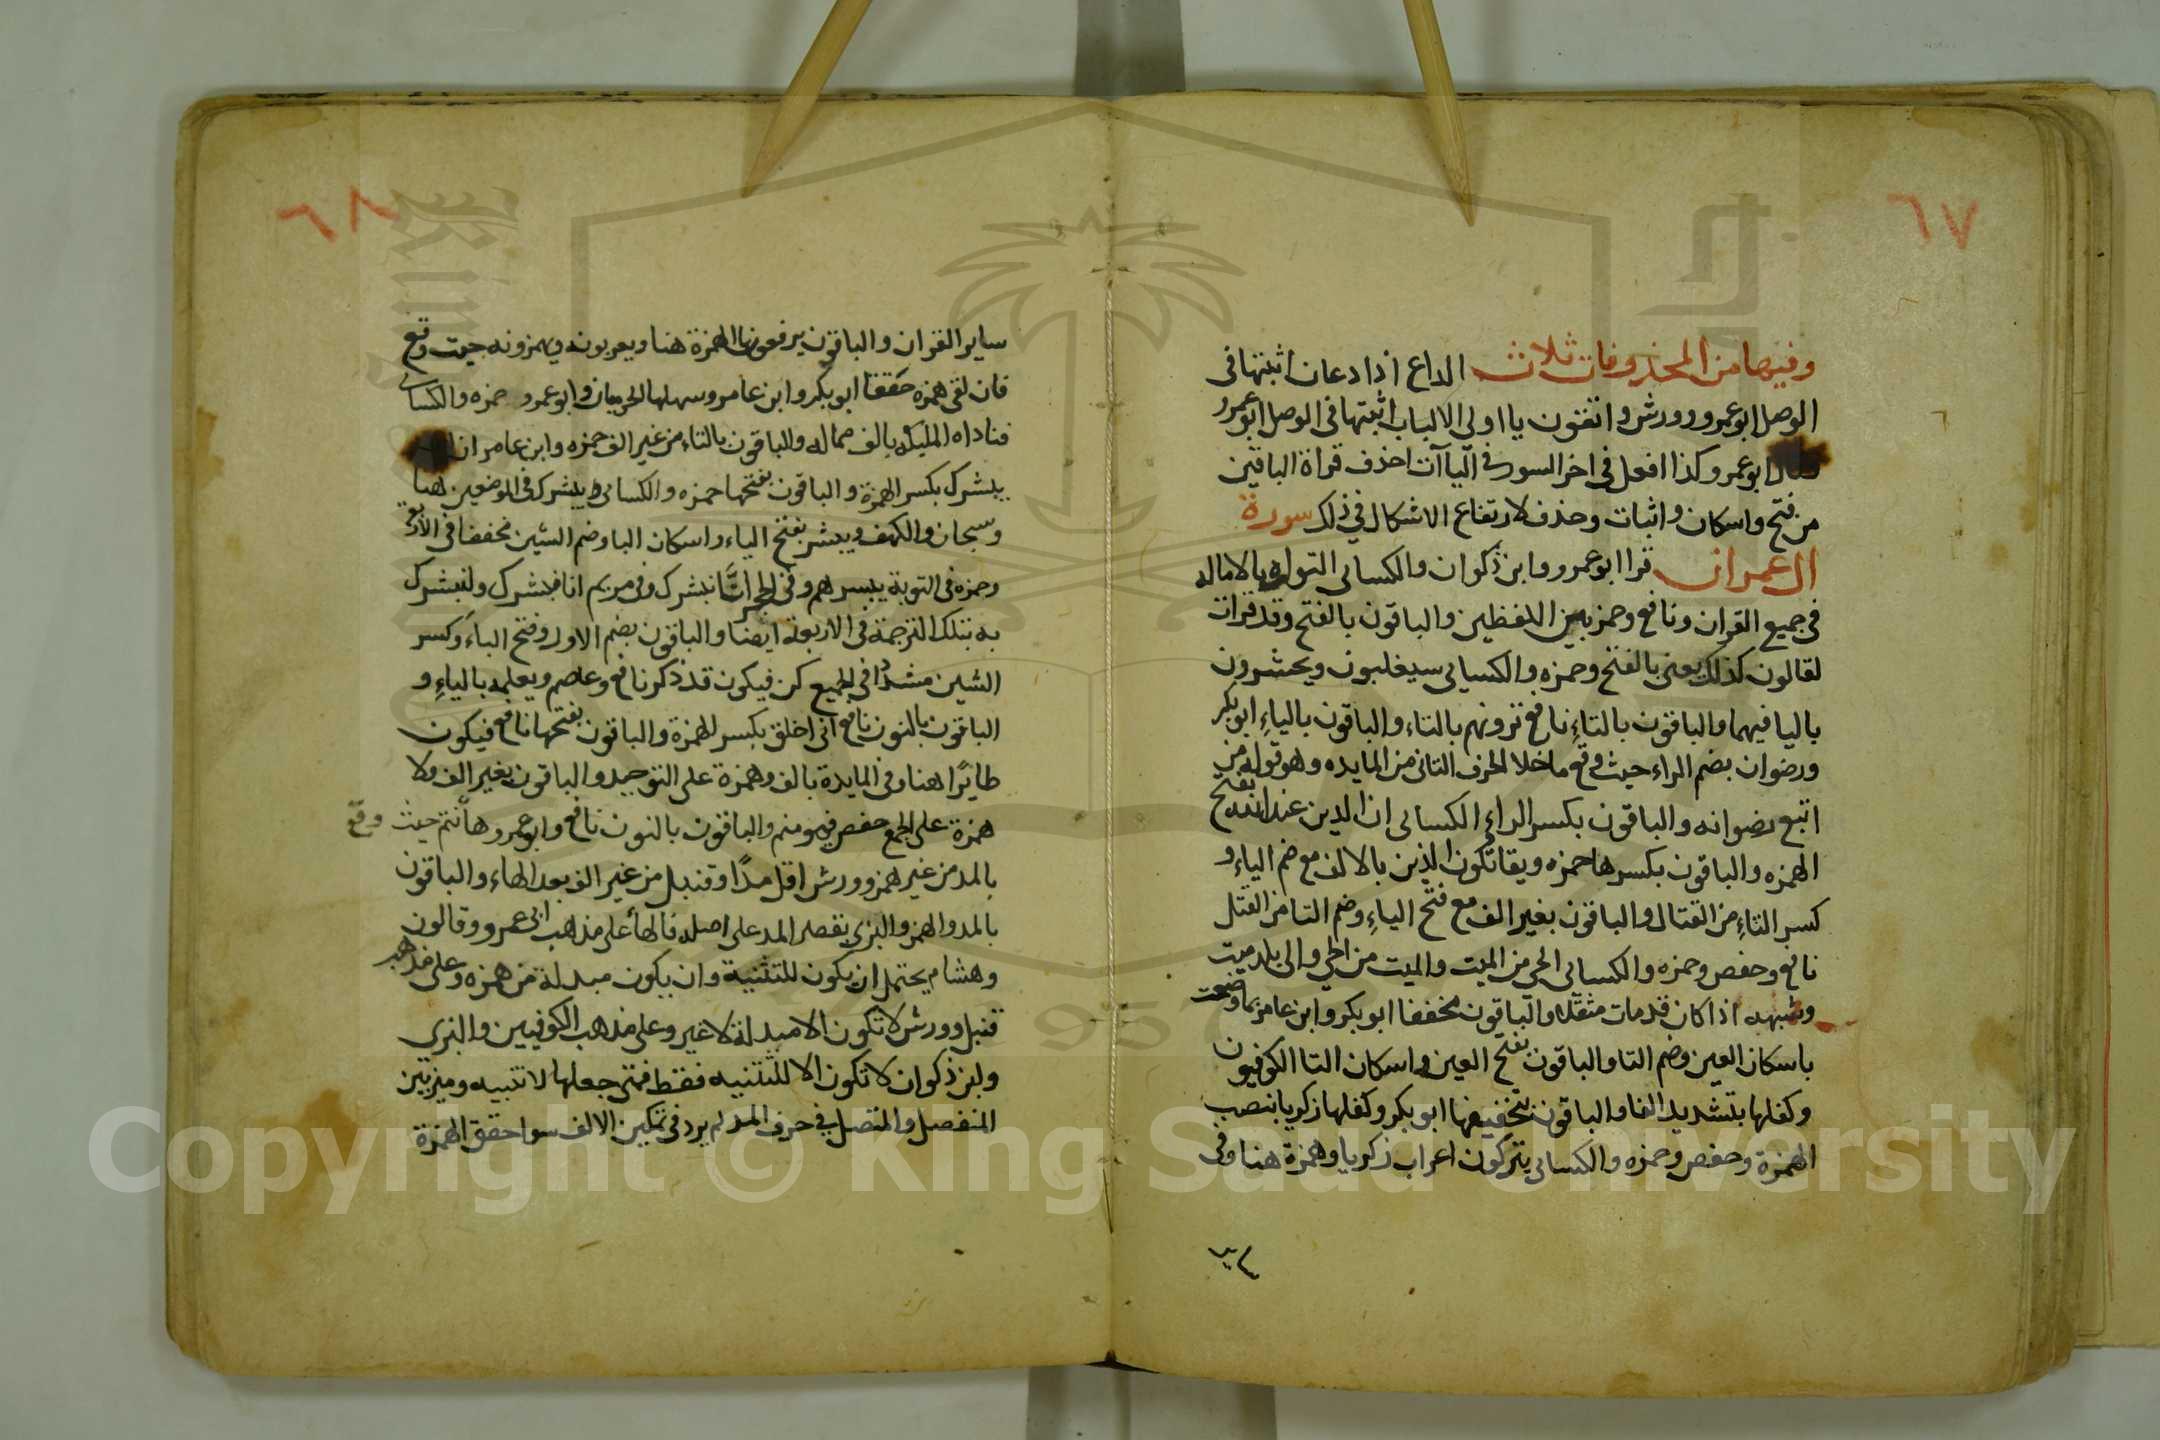 ٦٧
وفيها من المحذوفات ثلاث الداع اذا دعان اثبتها في
الوصل ابو عمرو وورش واتقون يا اولى الالباب اثبتها في الوصل ابو عمرو
قال ابو عمرو وكذا افعل في اخر السور في الياآت احذف قراة الباقين
من فتح واسكان واثبات وحذف لارتفاع الاشكال في ذلك سورة
ال عمران قرا ابو عمرو وابن ذكوان والكسائي التوراه بالاماله
في جميع القران ونافع وحمزه بين اللفظين والباقون بالفتح وقد قرات
لقالون كذلك يعنى بالفتح وحمزه والكسايى سيغلبون ويحشرون
باليا فيهما والباقون بالتاءِ نافع ترونهم بالتاء والباقون بالياءِ ابو بكر
ورضوان بضم الراء حيث وقع ما خلا الحرف الثانى من المايده وهو قوله من
اتبع رضوانه والباقون بكسر الراءِ الكسائى ان الدين عند الله بفتح
الهمزه والباقون بكسرها حمزه ويقاتلون الذين بالالف مع ضم الياءِ و
كسر التاءِ من القتال والباقون بغير الف مع فتح الياءِ وضم التا من القتل
نافع وحفص وحمزه والكسائى الحى من الميت والميت من الحي والى بلد ميت
وشبهه اذا كان قد مات مثقلا والباقون مخففا ابو بكر وابن عامر بما وضعت
باسكان العين وضم التا والباقون بفتح العين واسكان التا الكوفيون
وكفلها بتشديد الفا والباقون بتخفيفها ابو بكر وكفلها زكريا بنصب
الهمزة وحفص وحمزه والكسائى يتركون اعراب زكريا وهمزة هنا وفى
٦٨
ساير القران والباقون يرفعون الهمزة هنا ويعربونه ويهمزونه حيث وقع
فان لقى همزه حققها ابو بكر وابن عامر وسهلها الحرميان وابو عمرو حمزه والكسائى
فناداه المليكه بالف ممالة والباقون بالتاء من غير الف حمزه وابن عامر ان
يبشرك بكسر الهمزة والباقون بفتحها حمزه والكسائى يبشرك فى الموضعين هنا
وسبحان والكهف ويبشر بفتح الياء واسكان البا وضم الشين مخففا فى الاربعة
وحمزه فى التوبة يبشرهم وفى الحجر انَّا نبشرك وفى مريم انا نبشرك ولتبشرك
به بتلك الترجمة فى الاربعة ايضا والباقون بضم الاول وفتح الباءِ وكسر
الشين مشددًا فى الجميع كن فيكون قد ذكر نافع وعاصم ويعلمه بالياءِ و
الباقون بالنون نافع انى اخلق بكسر الهمزة والباقون بفتحها نافع فيكون
طائرًا هنا وفى المايدة بالف وهمزة على التوحيد والباقون بغير الف ولا
همزة على الجمع حفص فيوفيهم والباقون بالنون نافع وابو عمرو هأنتم حيث وقع
بالمد من غير همز وورش اقل مدًا وقنبل من غير الف بعد الهاء والباقون
بالمد والهمز والبزى يقصر المد على اصله فالهاءُ على مذهب ابى عمرو وقالون
وهشام يحتمل ان يكون للتثنية وان يكون مبدلة من همزه وعلى مذهب
قنبل وورش لا تكون الا مبدلة لا غير وعلى مذهب الكوفيين والبزى
وابن ذكوان لا تكون الا للتثنيه فقط فمتى جعلها لا تنبيه وميز بين
المنفصل والمتصل فى حرف المد لم يزد فى تمكين الالف سوا حقق الهمزة
Copyright © King Saud University
1957